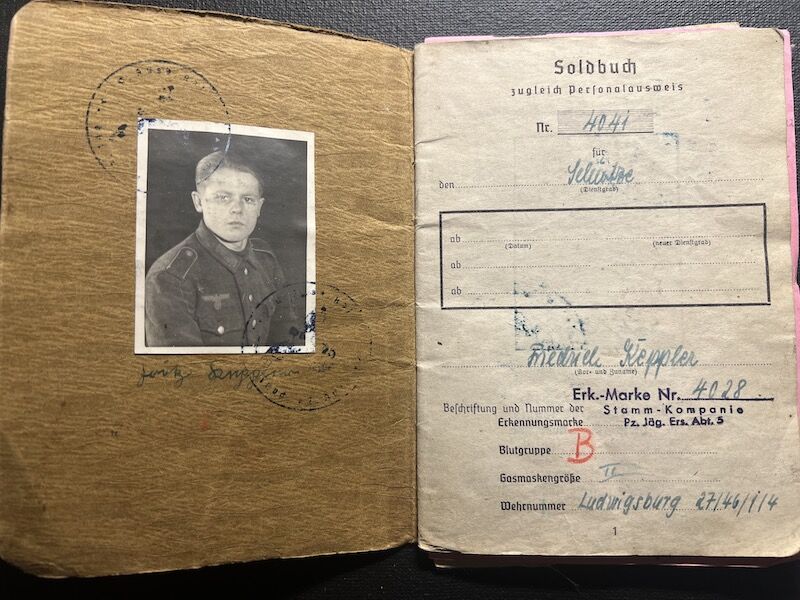 Soldbuch
zugleich Personalausweis
Nr. 4041
für
den Schütze
(Dienstgrad)
ab
(Datum) (neuer Dienstgrad)
ab
ab
Diedrich Keppler
(Vor- und Zuname)
Erk.-Marke Nr. 4028
Beschriftung und Nummer der Stamm-Kompanie
Erkennungsmarke Pz. Jäg. Ers. Abt. 5
Blutgruppe B
Gasmaskengröße II
Wehrnummer Ludwigsburg 27/46/1/4
1